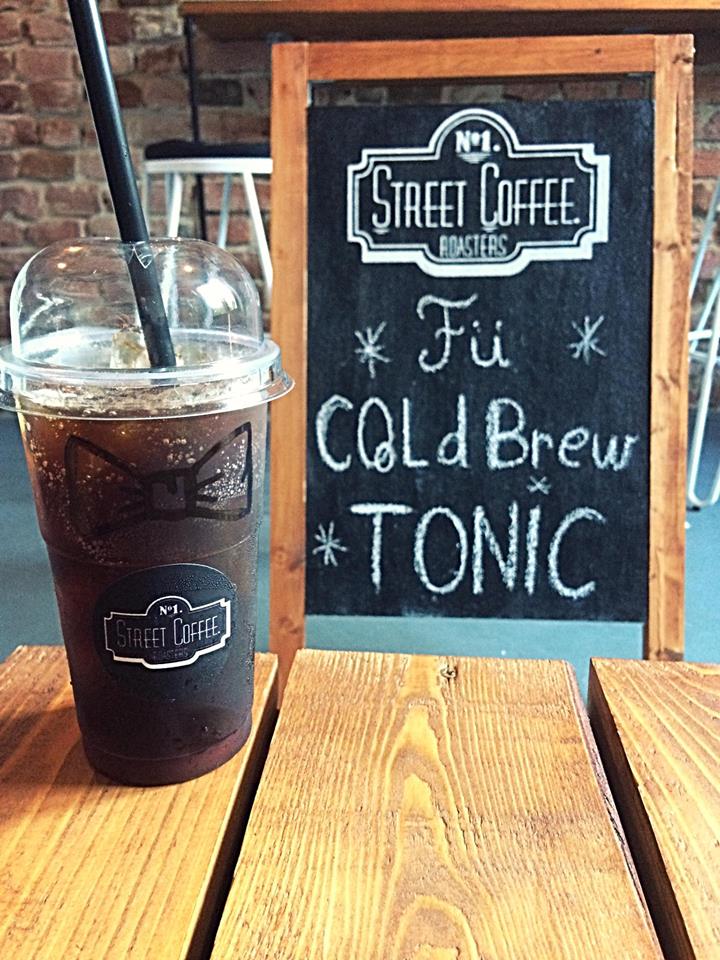 No1.
STREET COFFEE.
ROASTERS
Fü
COLd Brew
TONİC
No1.
STREET COFFEE.
ROASTERS